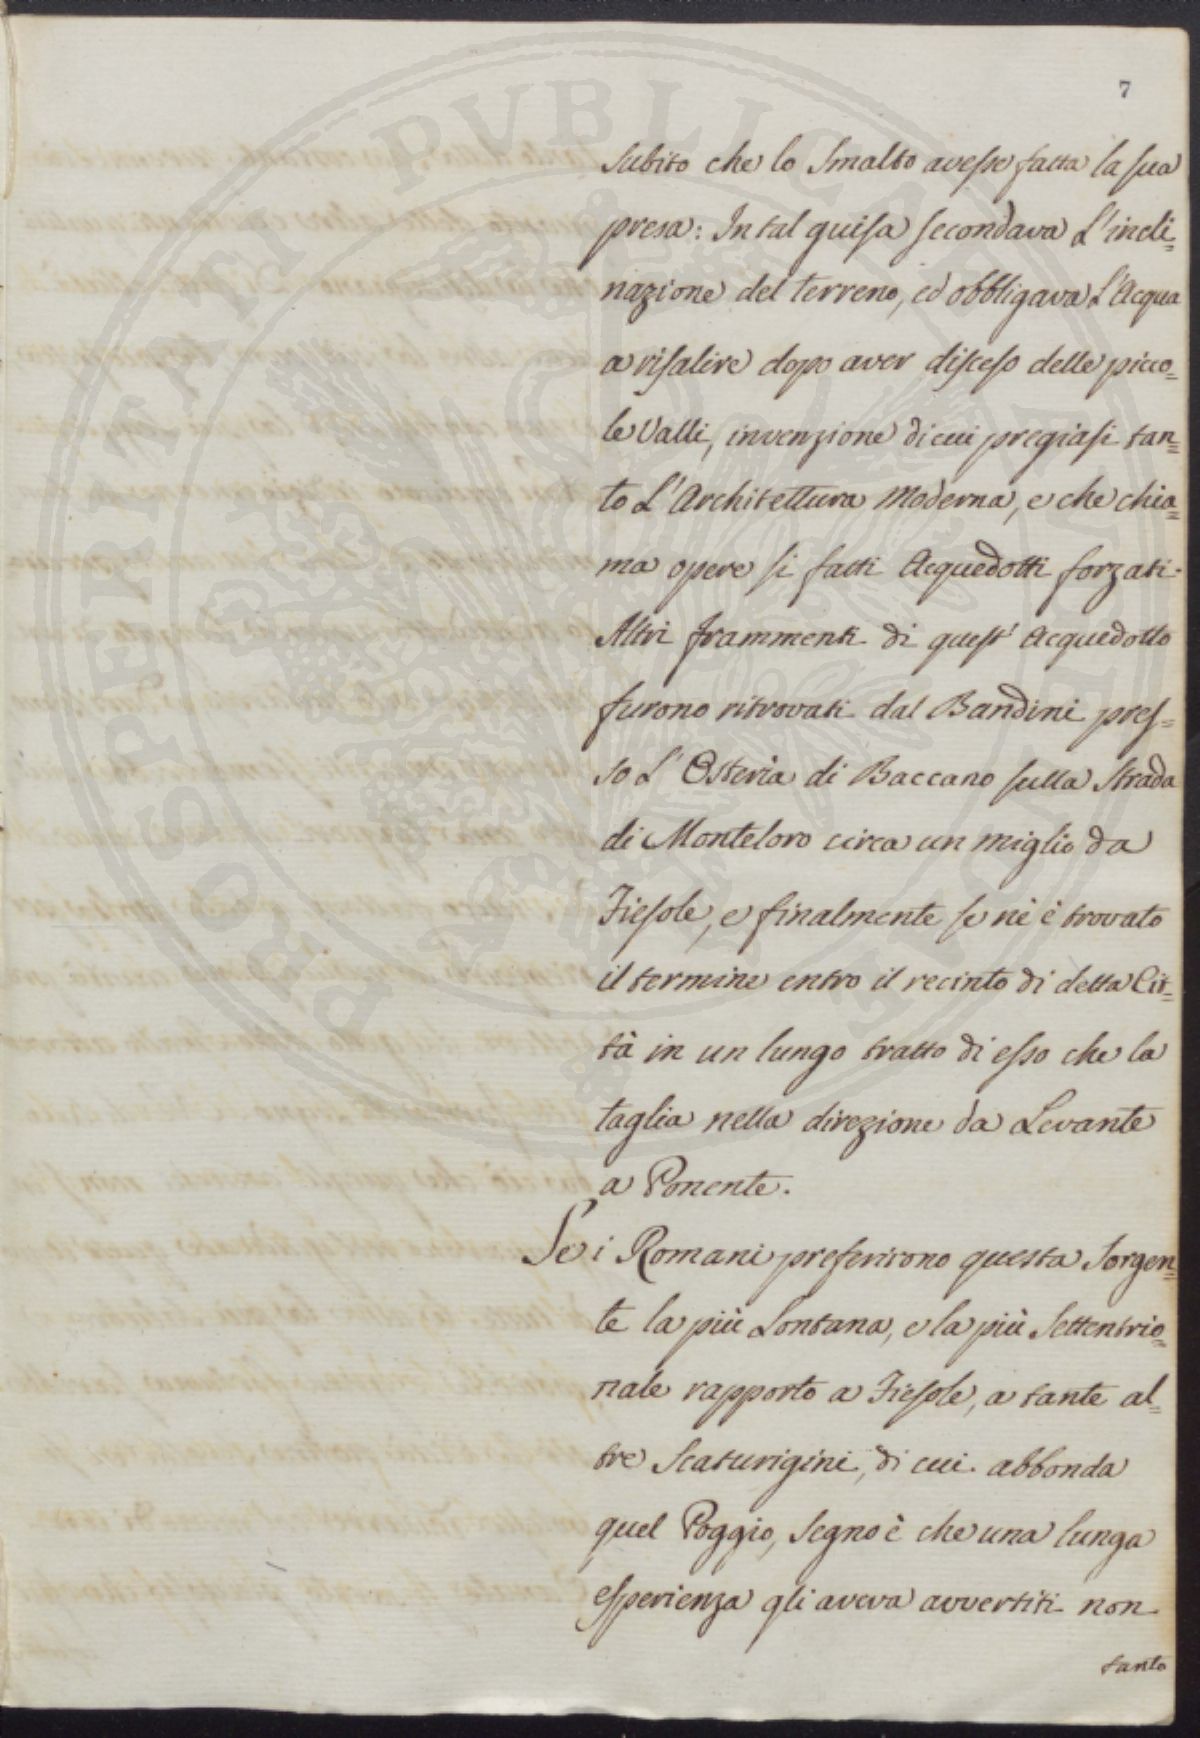 7
subito che lo Smalto avesse fatta la sua
presa: In tal guisa secondava L'incli=
nazione del terreno, ed obbligava L'Acqua
a risalire dopo aver disceso delle picco=
le Valli, invenzione di cui pregiasi tan=
to L'Architettura Moderna, e che chia=
ma opere si fatti Acquedotti forzati.
Altri frammenti di quest' Acquedotto
furono ritrovati dal Bandini pres=
so L'Osteria di Baccano sulla Strada
di Monteloro circa un miglio da
Fiesole, e finalmente se nè è trovato
il termine entro il recinto di detta Cit=
tà in un lungo tratto di esso che la
taglia nella direzione da Levante
a Ponente.
Se i Romani preferirono questa Sorgen=
te la più Lontana, e la più Settentrio=
nale rapporto a Fiesole, a tante al=
tre Scaturigini, di cui abbonda
quel Poggio, segno è che una lunga
esperienza gli aveva avvertiti non
tanto
PROSPERITATI PVBLICAE